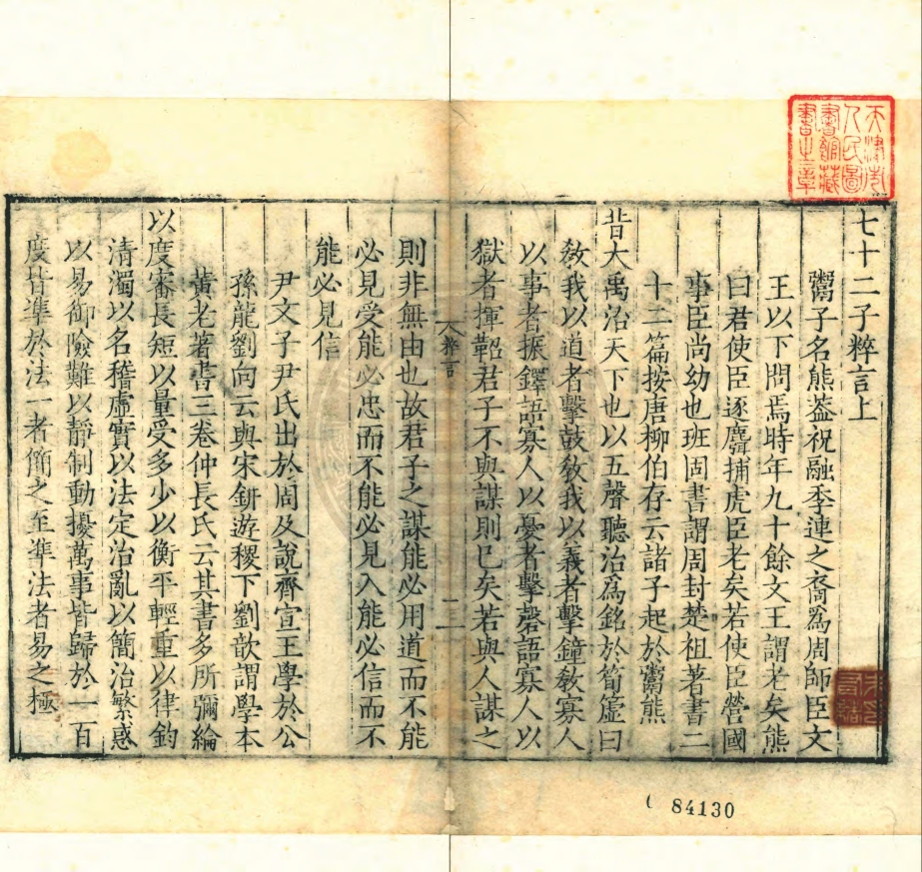 天津市
人民圖
書館藏
書之章
七十二子粹言上
鬻子名熊蓋祝融季連之裔爲周師臣文
王以下問焉時年九十餘文王謂老矣熊
曰君使臣逐麋捕虎臣老矣若使臣營國
事臣尚幼也班固書謂周封楚祖著書二
十二篇按唐柳伯存云諸子起於鬻熊
昔大禹治天下也以五聲聽治爲銘於筍簴曰
敎我以道者擊鼓敎我以義者擊鐘敎寡人
以事者振鐸語寡人以憂者擊磬語寡人以
獄者揮鞀君子不與謀則已矣若與人謀之
粹言
則非無由也故君子之謀能必用道而不能
必見受能必忠而不能必見入能必信而不
能必見信
尹文子尹氏出於周及說齊宣王學於公
孫龍劉向云與宋鈃遊稷下劉歆謂學本
黃老著書三卷仲長氏云其書多所彌綸
以度審長短以量受多少以衡平輕重以律鈞
清濁以名稽虛實以法定治亂以簡治繁惑
以易御險難以靜制動擾萬事皆歸於一百
度皆準於法一者簡之至準法者易之極
84130